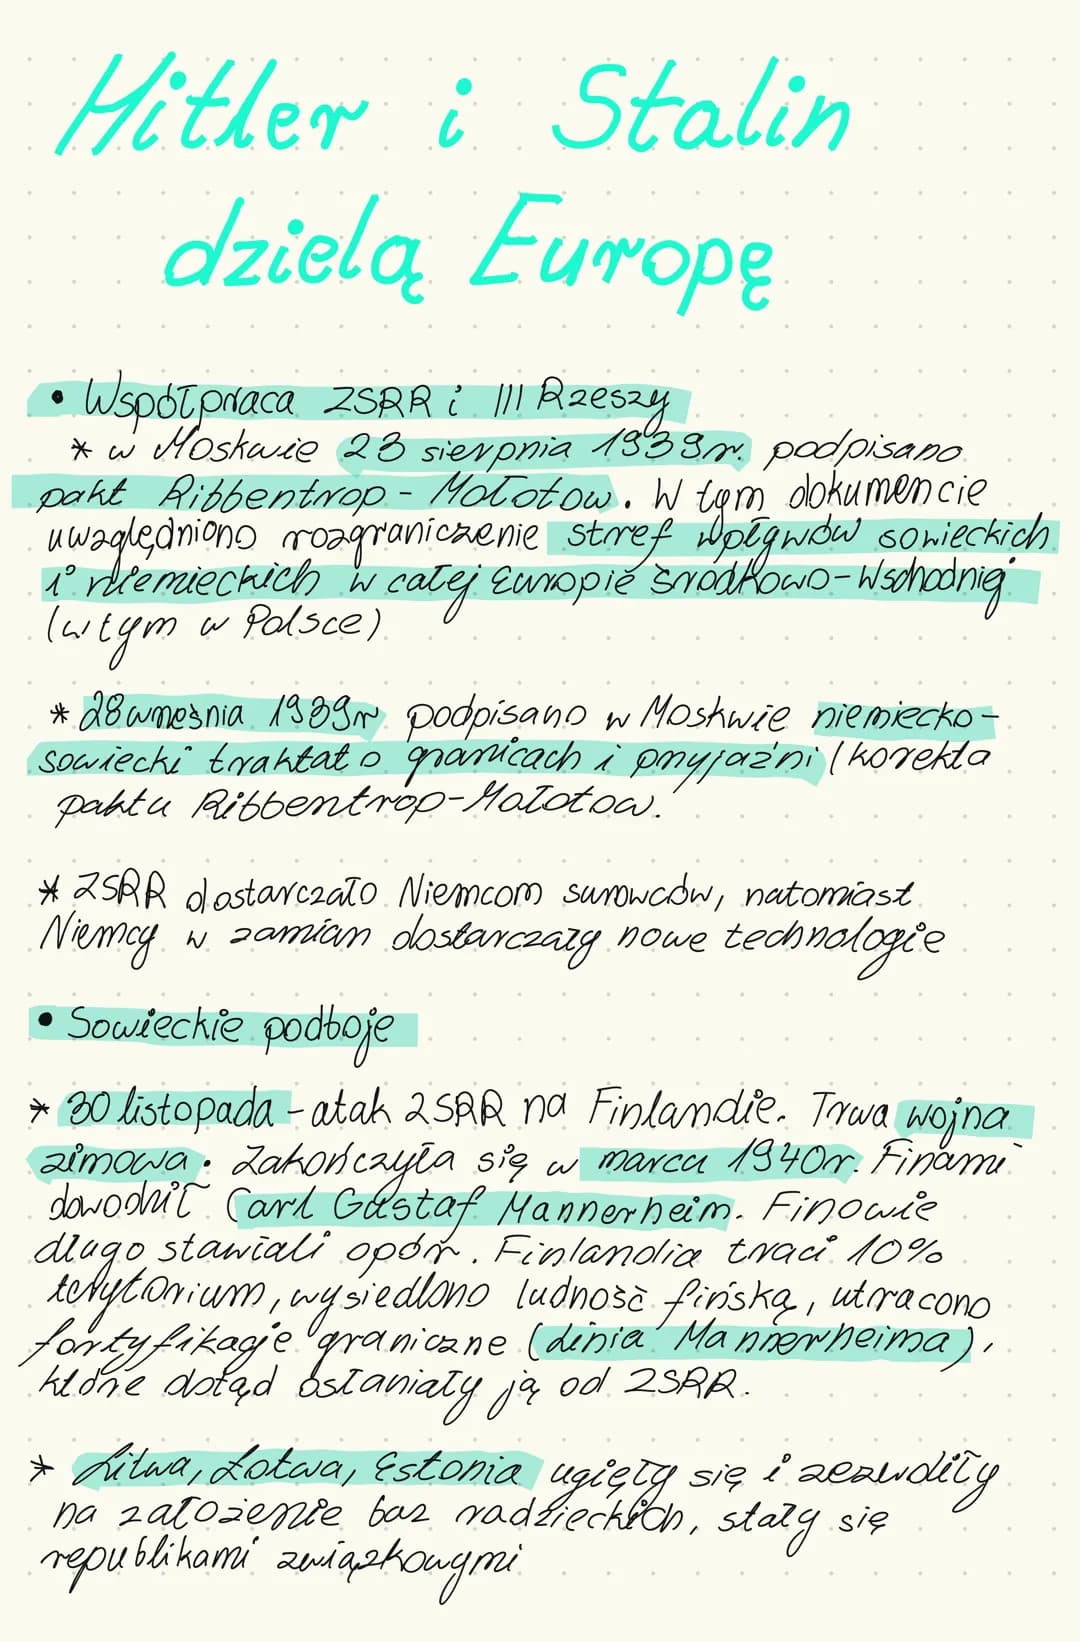 Hitler i Stalin
dzielą Europę
• Współpraca ZSRR i III Rzeszy
* w Moskwie 23 sierpnia 1939r. podpisano
pakt Ribbentrop - Mołotow. W tym dokumencie
uwzględniono rozgraniczenie stref wpływów sowieckich
i niemieckich w całej Europie Środkowo-Wschodniej
(w tym w Polsce)
* 28 września 1939r podpisano w Moskwie niemiecko-
sowiecki traktat o granicach i przyjaźni (korekta
paktu Ribbentrop-Mołotow.
* ZSRR dostarczało Niemcom surowców, natomiast
Niemcy w zamian dostarczały nowe technologie
• Sowieckie podboje
* 30 listopada - atak ZSRR na Finlandie. Trwa wojna
zimowa. Zakończyła się w marcu 1940r. Finami
dowodził Carl Gustaf Mannerheim. Finowie
długo stawiali opór. Finlandia traci 10%
terytorium, wysiedlono ludność fińską, utracono
fortyfikacje graniczne (linia Mannerheima),
które dotąd osłaniały ją od ZSRR.
* Litwa, Łotwa, Estonia ugięły się i zezwoliły
na założenie baz radzieckich, stały się
republikami związkowymi